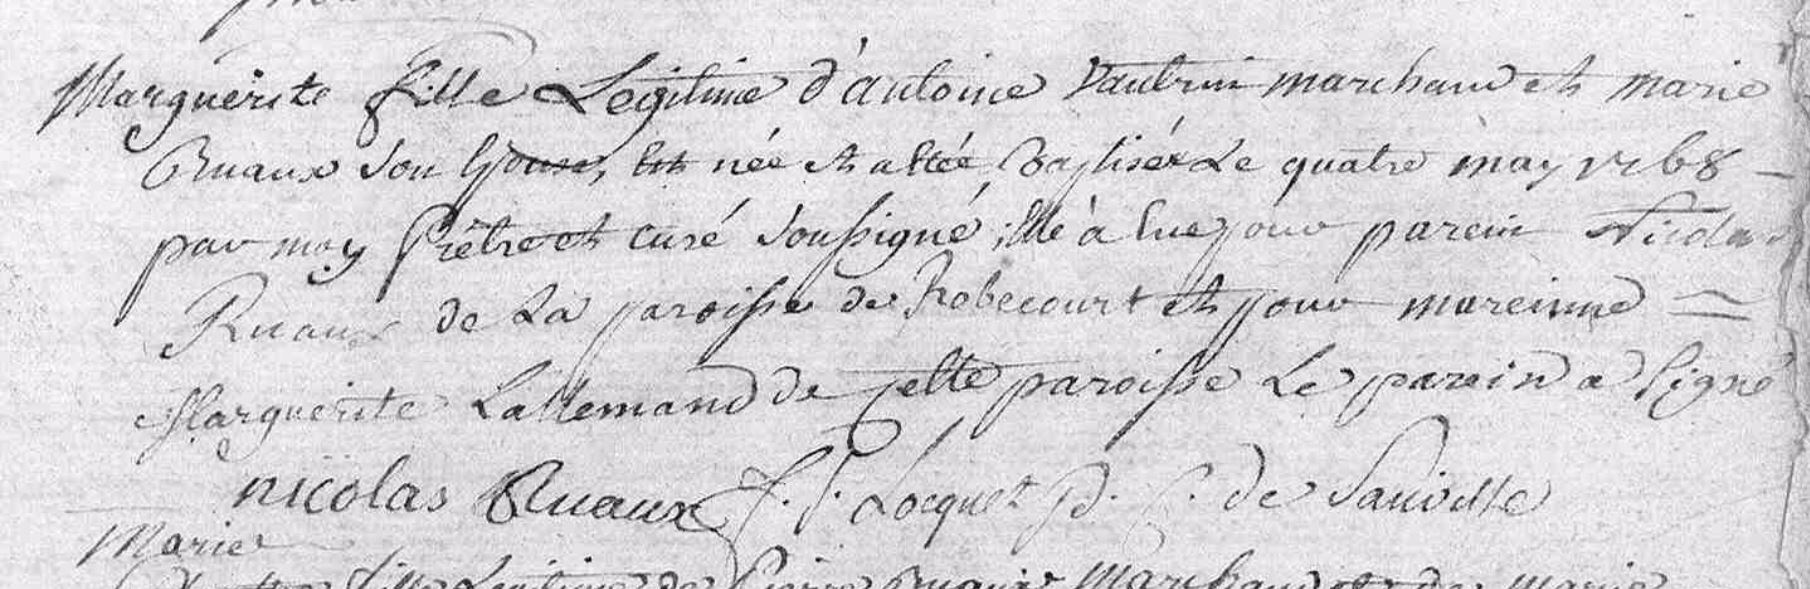 Marguerite fille Legitime d'antoine Vautrin marchand et marie
Ruaux son Epouse, est née et a étée Baptisée Le quatre may 1768
par moy Prêtre et curé soussigné, elle à Eue pour parein Nicolas
Ruaux de La paroisse de Robecourt et pour mareinne =
Marguerite Lallemand de cette paroisse Le parein a signé
nicolas Ruaux f. f. Locquet P. C. de Sauville
Marie
fille Legitime de Pierre marchand et de marie